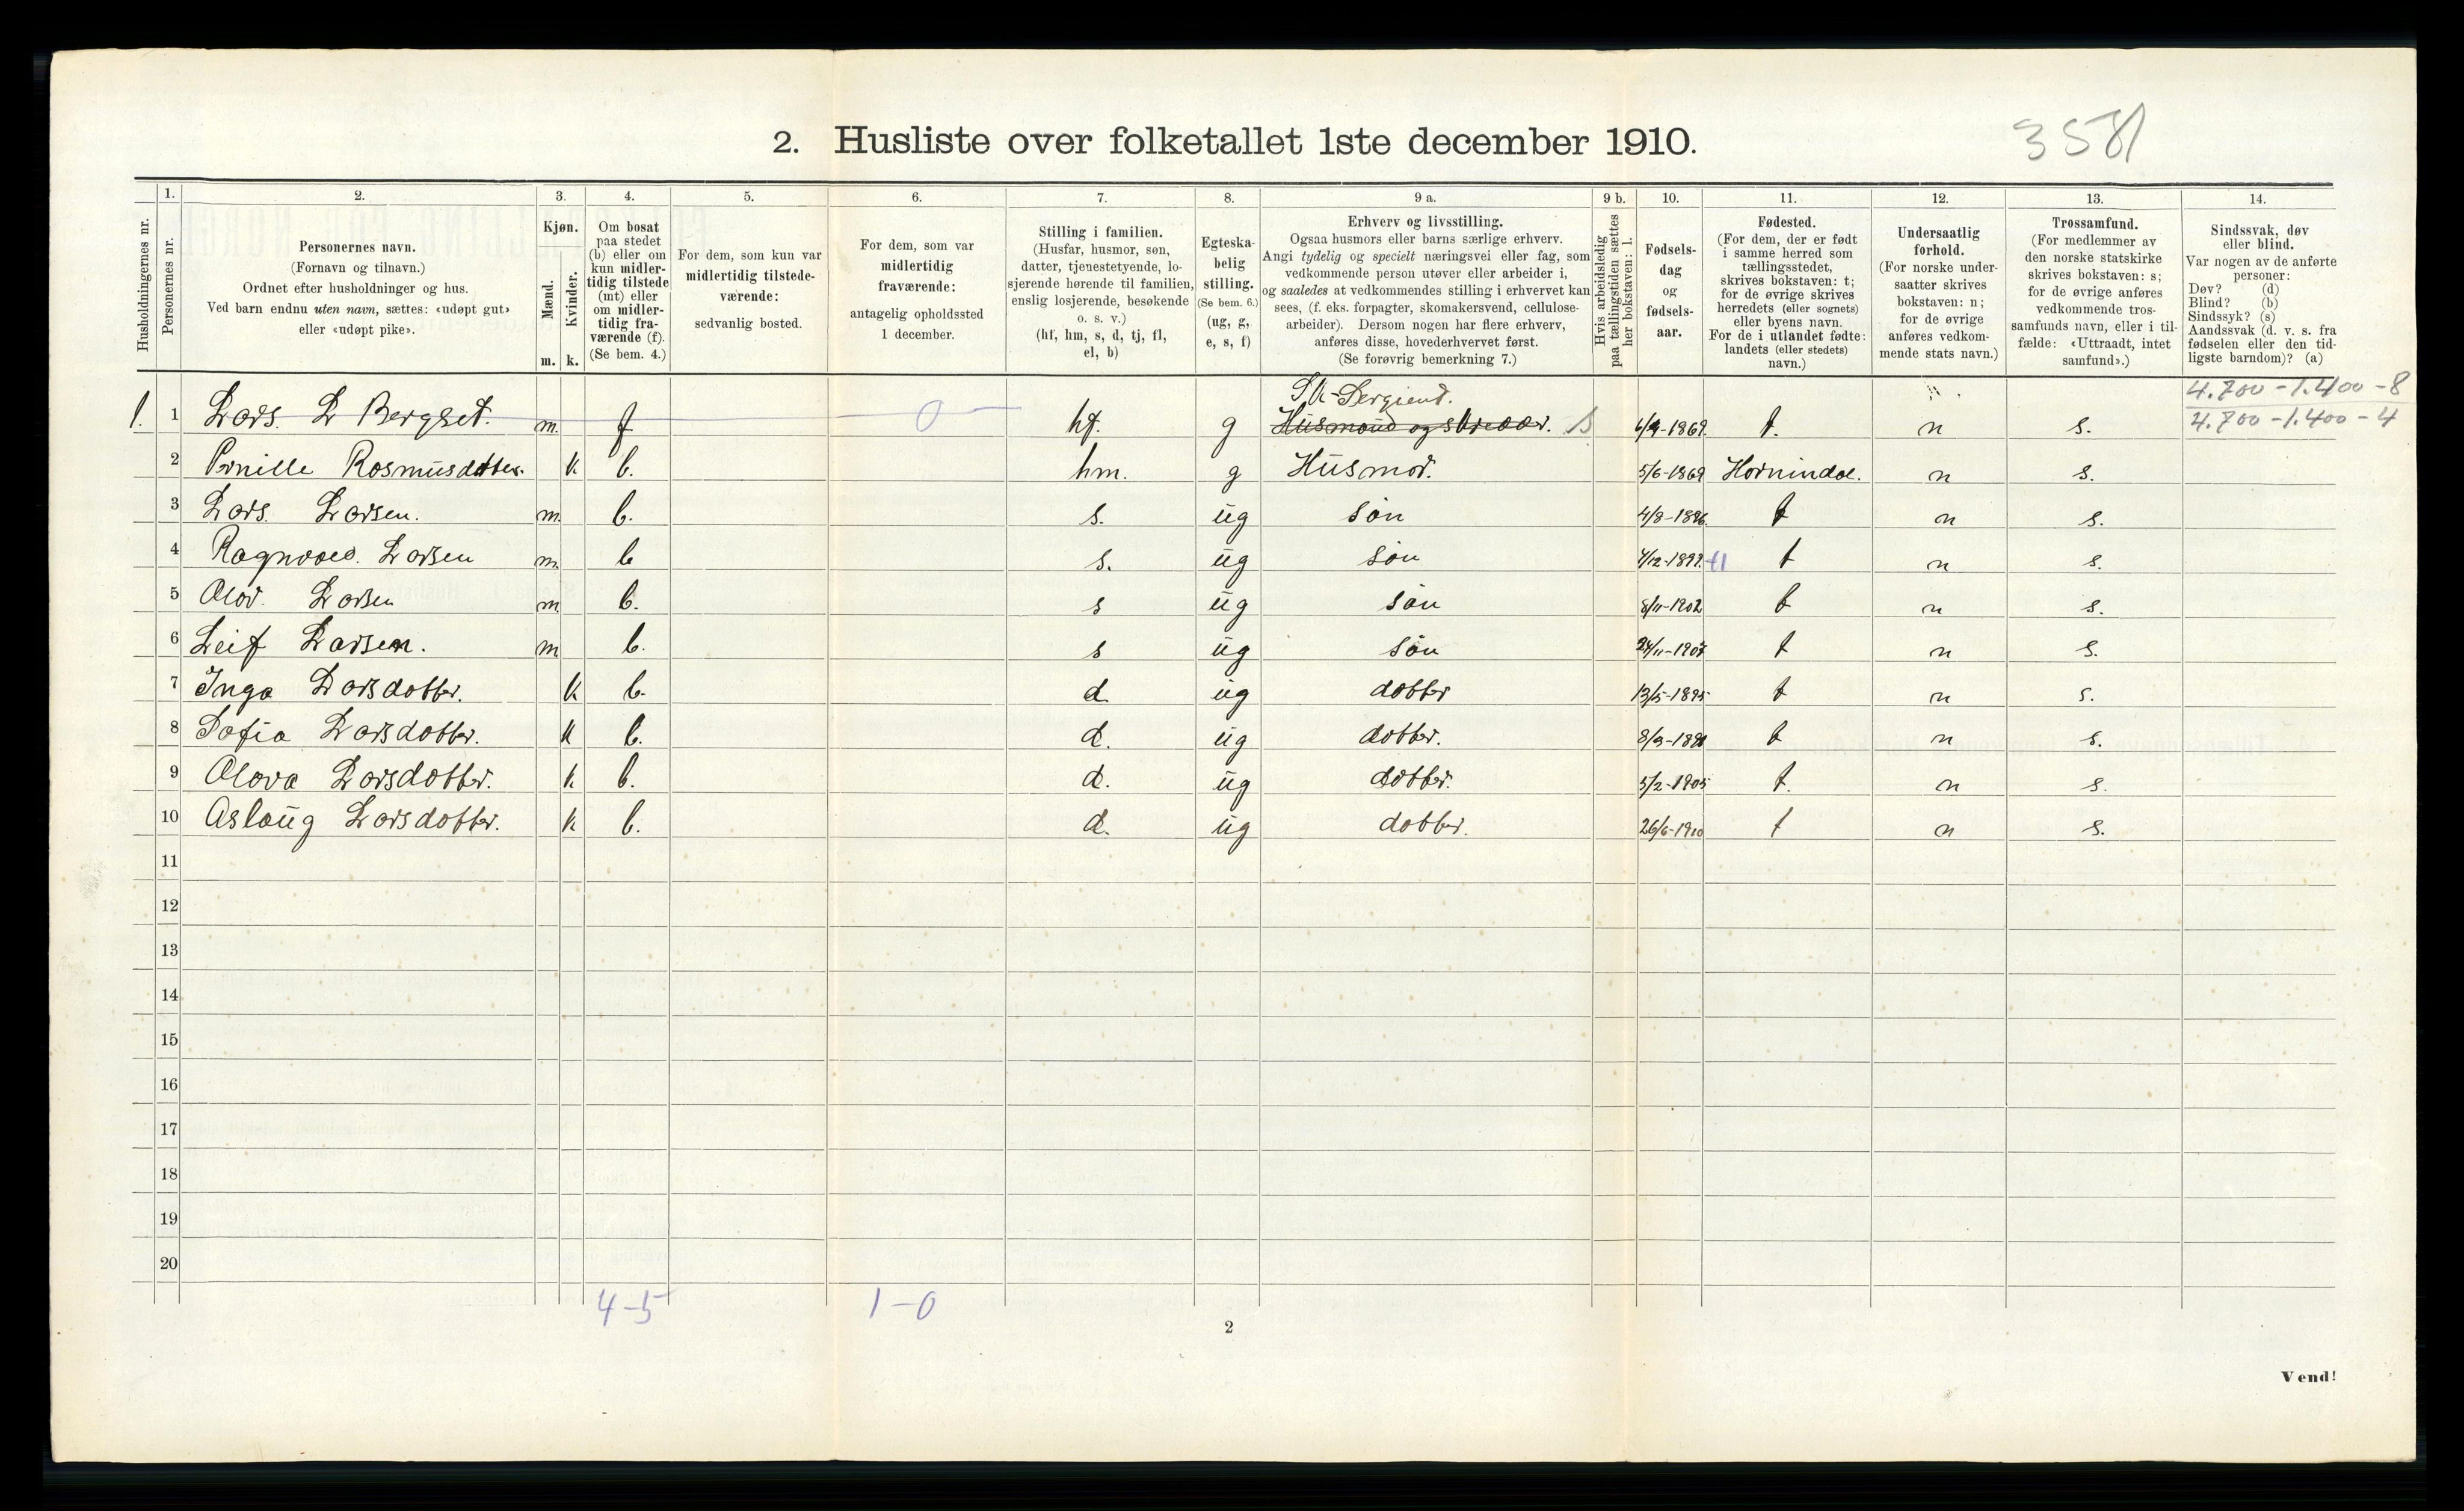 2. Husliste over folketallet 1ste december 1910.
3581
Husholdningernes nr.
1.
Personernes nr.
2.
Personernes navn.
(Fornavn og tilnavn.)
Ordnet efter husholdninger og hus.
Ved barn endnu uten navn, sættes: «udøpt gut»
eller «udøpt pike».
3.
Kjøn.
Mænd.
Kvinder.
m. k.
4.
Om bosat
paa stedet
(b) eller om
kun midler-
tidig tilstede
(mt) eller
om midler-
tidig fra-
værende (f).
(Se bem. 4.)
5.
For dem, som kun var
midlertidig tilstede-
værende:
sedvanlig bosted.
6.
For dem, som var
midlertidig
fraværende:
antagelig opholdssted
1 december.
7.
Stilling i familien.
(Husfar, husmor, søn,
datter, tjenestetyende, lo-
sjerende hørende til familien,
enslig losjerende, besøkende
o. s. v.)
(hf, hm, s, d, tj, fl,
el, b)
8.
Egteska-
belig
stilling.
(Se bem. 6.)
(ug, g,
e, s, f)
9 a.
Erhverv og livsstilling.
Ogsaa husmors eller barns særlige erhverv.
Angi tydelig og specielt næringsvei eller fag, som
vedkommende person utøver eller arbeider i,
og saaledes at vedkommendes stilling i erhvervet kan
sees, (f. eks. forpagter, skomakersvend, cellulose-
arbeider). Dersom nogen har flere erhverv,
anføres disse, hovederhvervet først.
(Se forøvrig bemerkning 7.)
9 b.
Hvis arbeidsledig
paa tællingstiden sættes
her bokstaven: l.
10.
Fødsels-
dag
og
fødsels-
aar.
11.
Fødested.
(For dem, der er født
i samme herred som
tællingsstedet,
skrives bokstaven: t;
for de øvrige skrives
herredets (eller sognets)
eller byens navn.
For de i utlandet fødte:
landets (eller stedets)
navn.)
12.
Undersaatlig
forhold.
(For norske under-
saatter skrives
bokstaven: n;
for de øvrige
anføres vedkom-
mende stats navn.)
13.
Trossamfund.
(For medlemmer av
den norske statskirke
skrives bokstaven: s;
for de øvrige anføres
vedkommende tros-
samfunds navn, eller i til-
fælde: «Uttraadt, intet
samfund».)
14.
Sindssvak, døv
eller blind.
Var nogen av de anførte
personer:
Døv? (d)
Blind? (b)
Sindssyk? (s)
Aandssvak (d. v. s. fra
fødselen eller den tid-
ligste barndom)? (a)
4.700 - 1.400 - 8
Sk-Sergient.
1. 1 Lars. L Bergset. m. f 0 hf. g Husmand og skreder. 6/9-1869. t. n s. 4.700 - 1.400 - 4
2 Pernille Rasmusdotter. k b. hm. g Husmor. 5/6-1869 Hornindal. n s.
3 Lars. Larsen. m. b. s. ug søn 4/8-1896. t n s.
4 Ragnvald. Larsen m. b s. ug søn 4/12-1899. t n s.
5 Olav. Larsen m b. s ug søn 8/11-1902 t n s.
6 Leif Larsen. m b. s ug søn 24/11-1907 t n s.
7 Inga Larsdotter. k b. d. ug dotter 13/5-1895 t n s.
8 Sofia Larsdotter. k b. d. ug dotter. t n s.
9 Olava Larsdotter. k b. d. ug dotter. 5/2-1905 t. n s.
10 Aslaug Larsdotter. k b. d. ug dotter. 26/6-1910 t n s.
11
12
13
14
15
16
17
18
19
20
4-5 1-0
2
Vend!